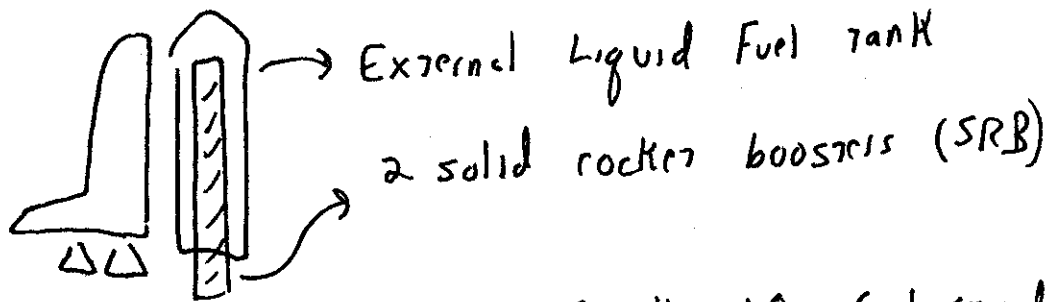 External Liquid Fuel Tank
2 solid rocket boosters (SRB)